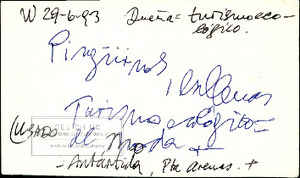 W 29-6-93 Dueña= turismo eco-
lógico.
Pingüinos
y ballenas
Turismo ecológico
de moda +
(USADO
- Antártida, Pta Arenas. +